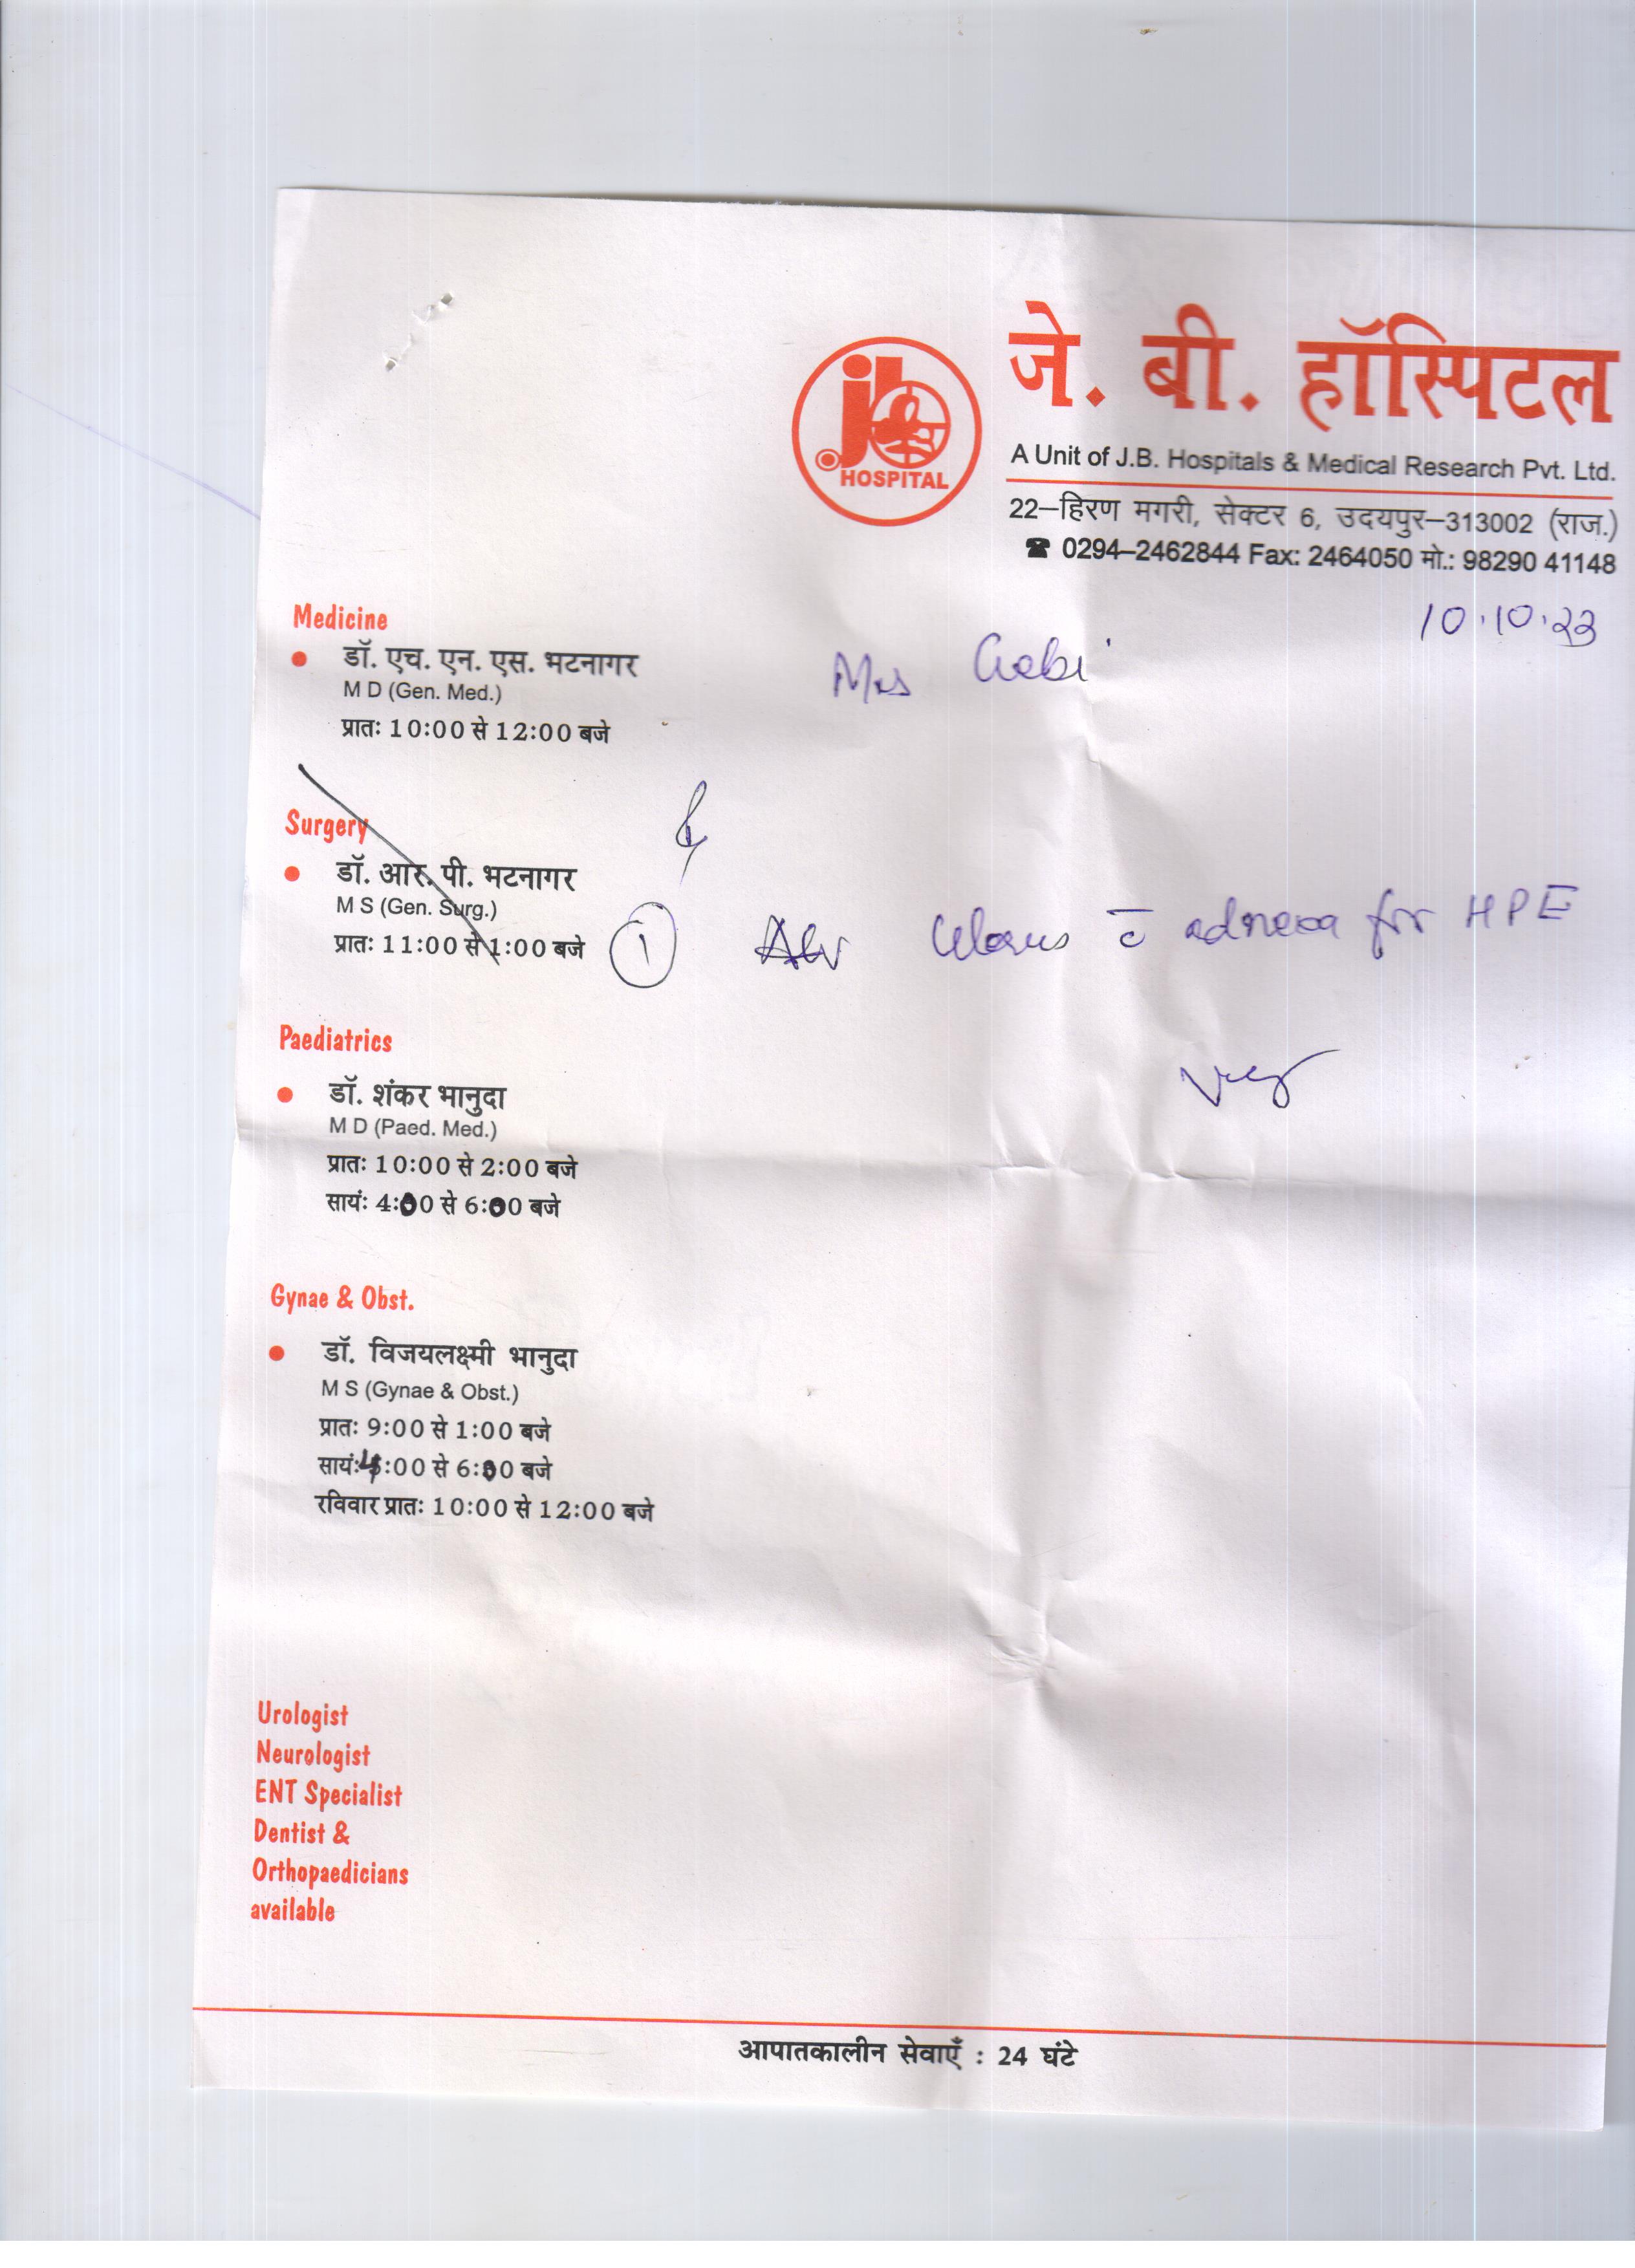 जे. बी. हॉस्पिटल
HOSPITAL
A Unit of J.B. Hospitals & Medical Research Pvt. Ltd.
22–हिरण मगरी, सेक्टर 6, उदयपुर–313002 (राज.)
☎ 0294–2462844 Fax: 2464050 मो.: 98290 41148
10.10.23
Mrs
Medicine
• डॉ. एच. एन. एस. भटनागर
M D (Gen. Med.)
प्रातः 10:00 से 12:00 बजे
Surgery
• डॉ. आर. पी. भटनागर
M S (Gen. Surg.)
प्रातः 11:00 से 1:00 बजे
① Adv Uterus c̄ adnexa for HPE
Paediatrics
• डॉ. शंकर भानुदा
M D (Paed. Med.)
प्रातः 10:00 से 2:00 बजे
सायंः 4:00 से 6:00 बजे
Gynae & Obst.
• डॉ. विजयलक्ष्मी भानुदा
M S (Gynae & Obst.)
प्रातः 9:00 से 1:00 बजे
सायंः 4:00 से 6:00 बजे
रविवार प्रातः 10:00 से 12:00 बजे
Urologist
Neurologist
ENT Specialist
Dentist &
Orthopaedicians
available
आपातकालीन सेवाएँ : 24 घंटे